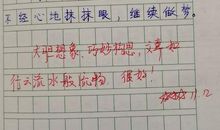 不经心地抹抹眼，继续做梦。
大胆想象、巧妙构思，文章如
行云流水般流畅。很好！
11.12